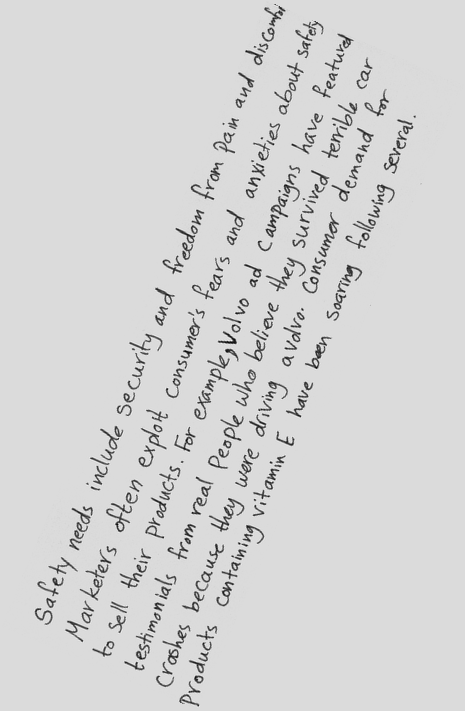 Safety needs include security and freedom from pain and discomfo
Marketers often exploit consumer's fears and anxieties about safety
to sell their products. For example, Volvo ad campaigns have featured
testimonials from real People who believe they survived terrible car
Crashes because they were driving a volvo. Consumer demand for
Products containing vitamin E have been soaring following several.